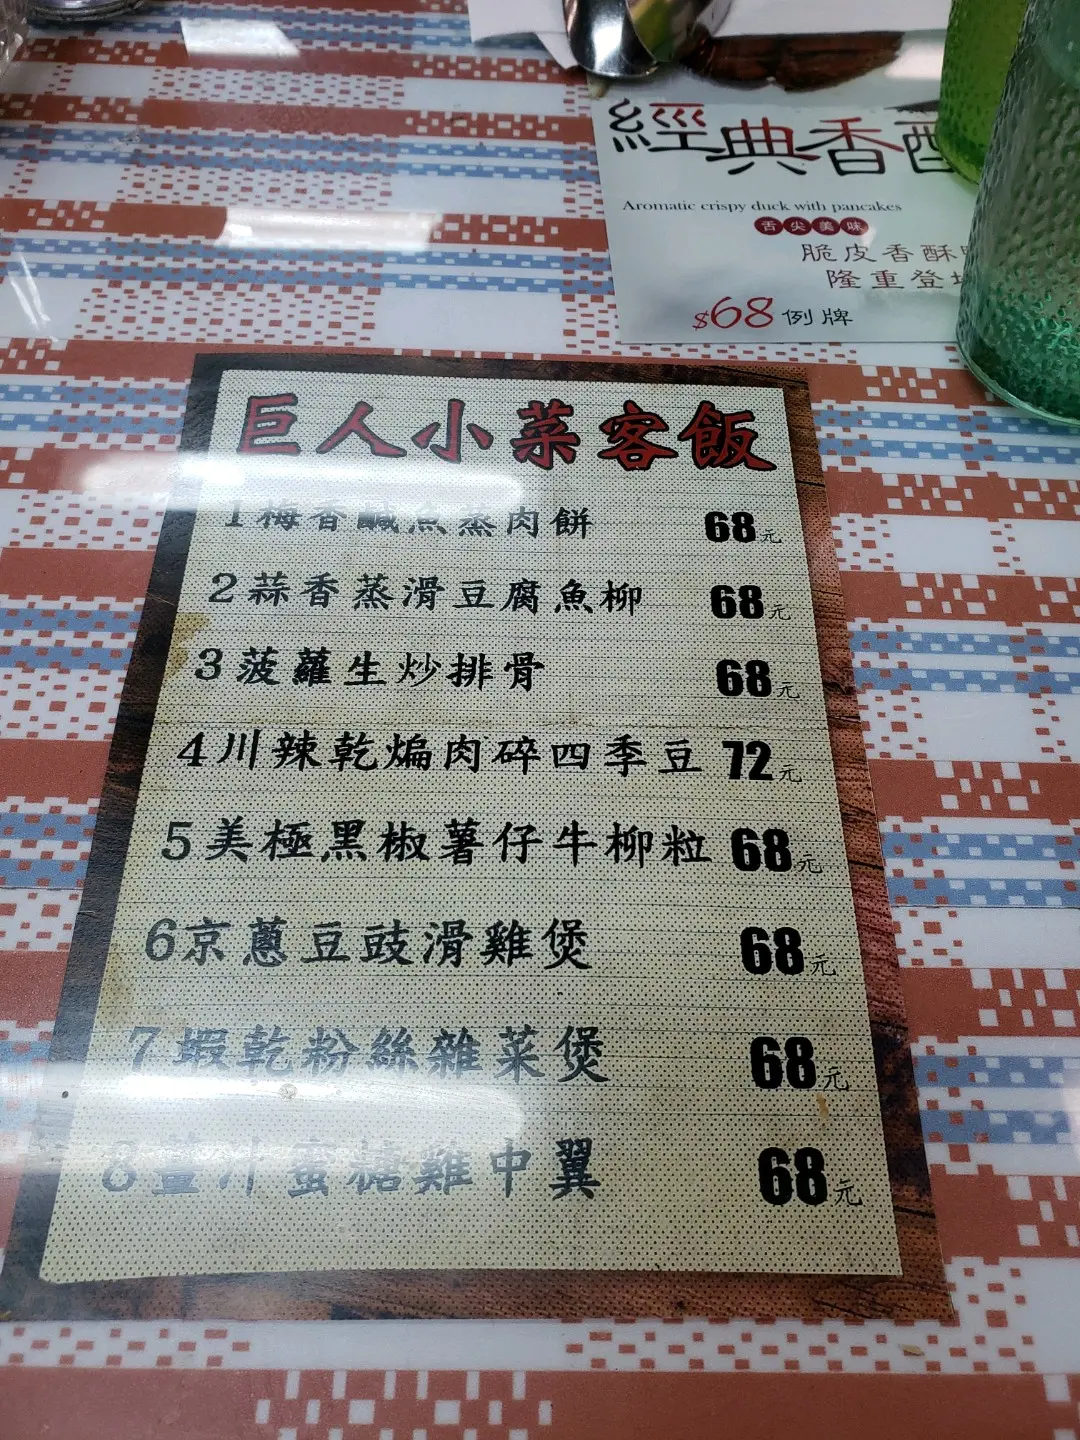 經典香酥
Aromatic crispy duck with pancakes
舌尖美味
脆皮香酥
隆重登場
$68例牌
巨人小菜客飯
1梅香鹹魚蒸肉餅 68元
2蒜香蒸滑豆腐魚柳 68元
3菠蘿生炒排骨 68元
4川辣乾煸肉碎四季豆 72元
5美極黑椒薯仔牛柳粒 68元
6京蔥豆豉滑雞煲 68元
7蝦乾粉絲雜菜煲 68元
8薑汁蜜糖雞中翼 68元